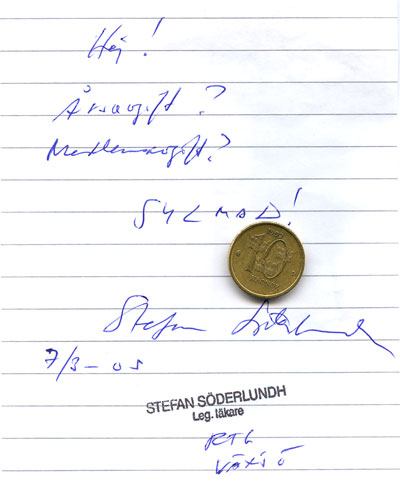 Hej!
Årsavgift?
Medlemsavgift?
10
Stefan Söderlundh
7/3-05
STEFAN SÖDERLUNDH
Leg. läkare
RTG
VÄXJÖ